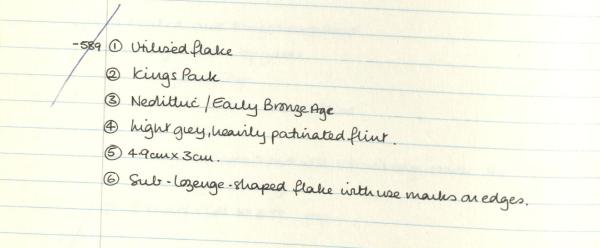 -589 ① Utilised flake
② Kings Park
③ Neolithic / Early Bronze Age
④ Light grey, heavily patinated flint.
⑤ 4.9cm x 3cm.
⑥ Sub-lozenge-shaped flake with use marks on edges.